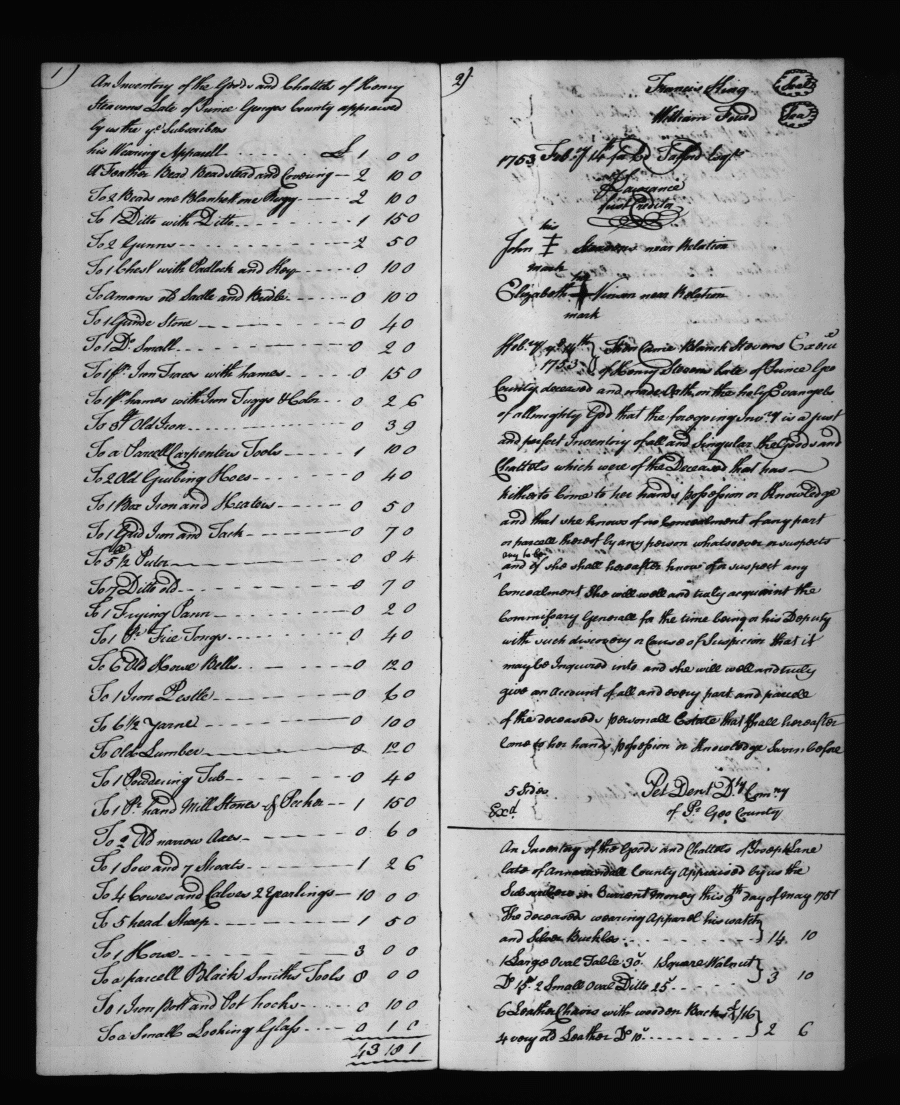 1)
An Inventory of the Goods and Chattels of Henry
Steavens Late of Prince Georges County appraised
by us the ye Subscribers
his Wearing Apparell £ 1 0 0
A Feather Bead Beadstead and Covering 2 10 0
To 2 Beads one Blankett one Rugg 2 10 0
To 1 Ditto with Ditto 1 15 0
To 2 Gunns 2 5 0
To 1 Chest with Padlock and Key 0 10 0
To a mans old Sadle and Bridle 0 10 0
To 1 Grinde Stone 0 4 0
To 1 Do Small 0 2 0
To 1 pr Iron Traces with hames 0 15 0
To 1 pr hames with Iron Tuggs & Color 0 2 6
To Old Iron 0 3 9
To a Parcell Carpenters Tools 1 10 0
To 2 Old Grubing Hoes 0 4 0
To 1 Box Iron and Heaters 0 5 0
To 1 Grid Iron and Jack 0 7 0
To 5 1/2 Putr 0 8 4
To 7 Ditto old 0 7 0
To 1 Frying Pann 0 2 0
To 1 Pr Fire Tongs 0 4 0
To 6 Old Horse Bells 0 12 0
To 1 Iron Pestle 0 6 0
To 6 1/2 Yarne 0 10 0
To Old Lumber 0 12 0
To 1 Powdering Tub 0 4 0
To 1 Pr hand Mill Stones & Pecker 1 15 0
To 2 Old narrow Axes 0 6 0
To 1 Sow and 7 Shoats 1 2 6
To 4 Cowes and Calves 2 Yearlings 10 0 0
To 5 head Sheep 1 5 0
To 1 Horse 3 0 0
To a parcell Black Smiths Tools 8 0 0
To 1 Iron Pott and Pot hocks 0 10 0
To a Small Looking Glass 0 1 0
43 18 1
2)
Francis King Seal
William Foard Seal
1753 Feb. ye 14
Laurance
Credita
his
John I Steavens near Relation
mark
her
Elizabeth Ninian near Relation
mark
Feb. ye 14th Then Came Blanch Stevens Execu
1753 of Henry Stevens late of Prince Geo
County deceased and made Oath on the holy Evangels
of allmighty God that the foregoing Invy is a just
and perfect Inventory of all and Singular the Goods and
Chattels which were of the Deceased that has
hitherto Come to her hands possession or Knowledge
and that she knows of no Concealment of any part
or parcell thereof by any person whatsoever or suspects
any to be
and if she shall hereafter know of or suspect any
Concealment She will well and truly acquaint the
Commissary Generall for the time being or his Deputy
with such discovery or Cause of Suspicion that it
may be Inquired into and she will well and truly
give an Account of all and every part and parcell
of the deceaseds personall Estate that Shall hereafter
Come to her hands possession or Knowledge Sworn before
5 Sides Pet Dent Dty Comry
Exd. of Pr Geo County
An Inventory of the Goods and Chattels of Joseph Lane
late of Annarundell County Appraised by us the
Subscribers in Current money this 9th day of May 1751
The deceaseds wearing Apparel his watch
and Silver Buckles 14 10
1 Large Oval Table 30 1 Square Walnut
Do 15 2 Small Oval Ditto 25 3 10
6 Leather Chairs with wooden Backs £1/16
4 very old Leather Do 10 2 6